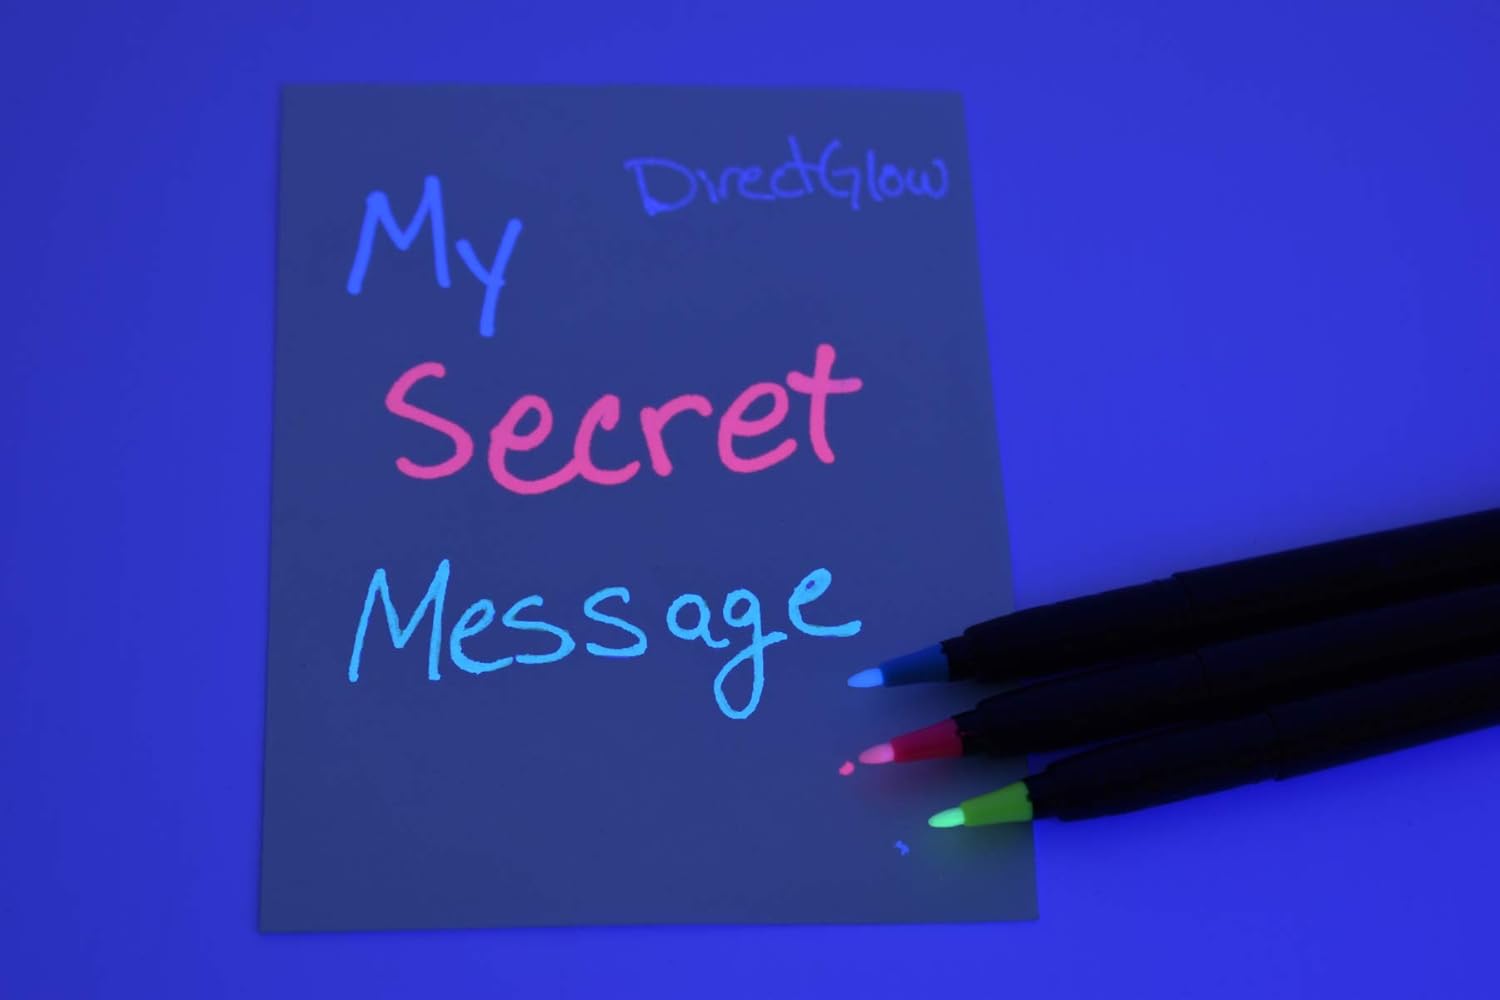 DirectGlow
My
Secret
Message